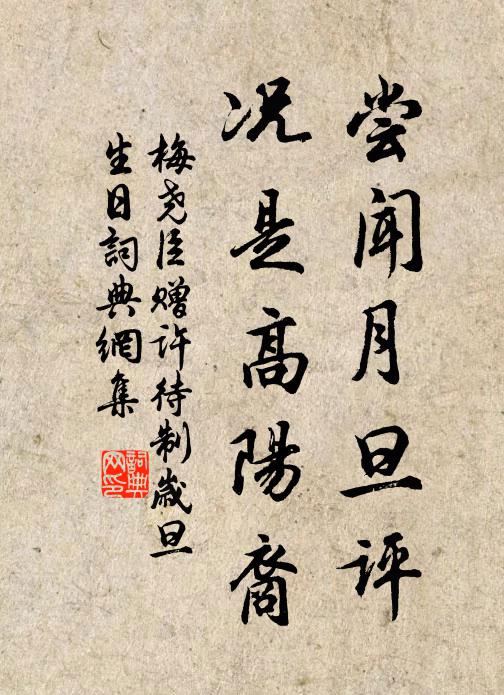 尝闻月旦评
况是高陽裔
梅尧臣赠许待制歲旦
生日詞典網集
詞典
网印